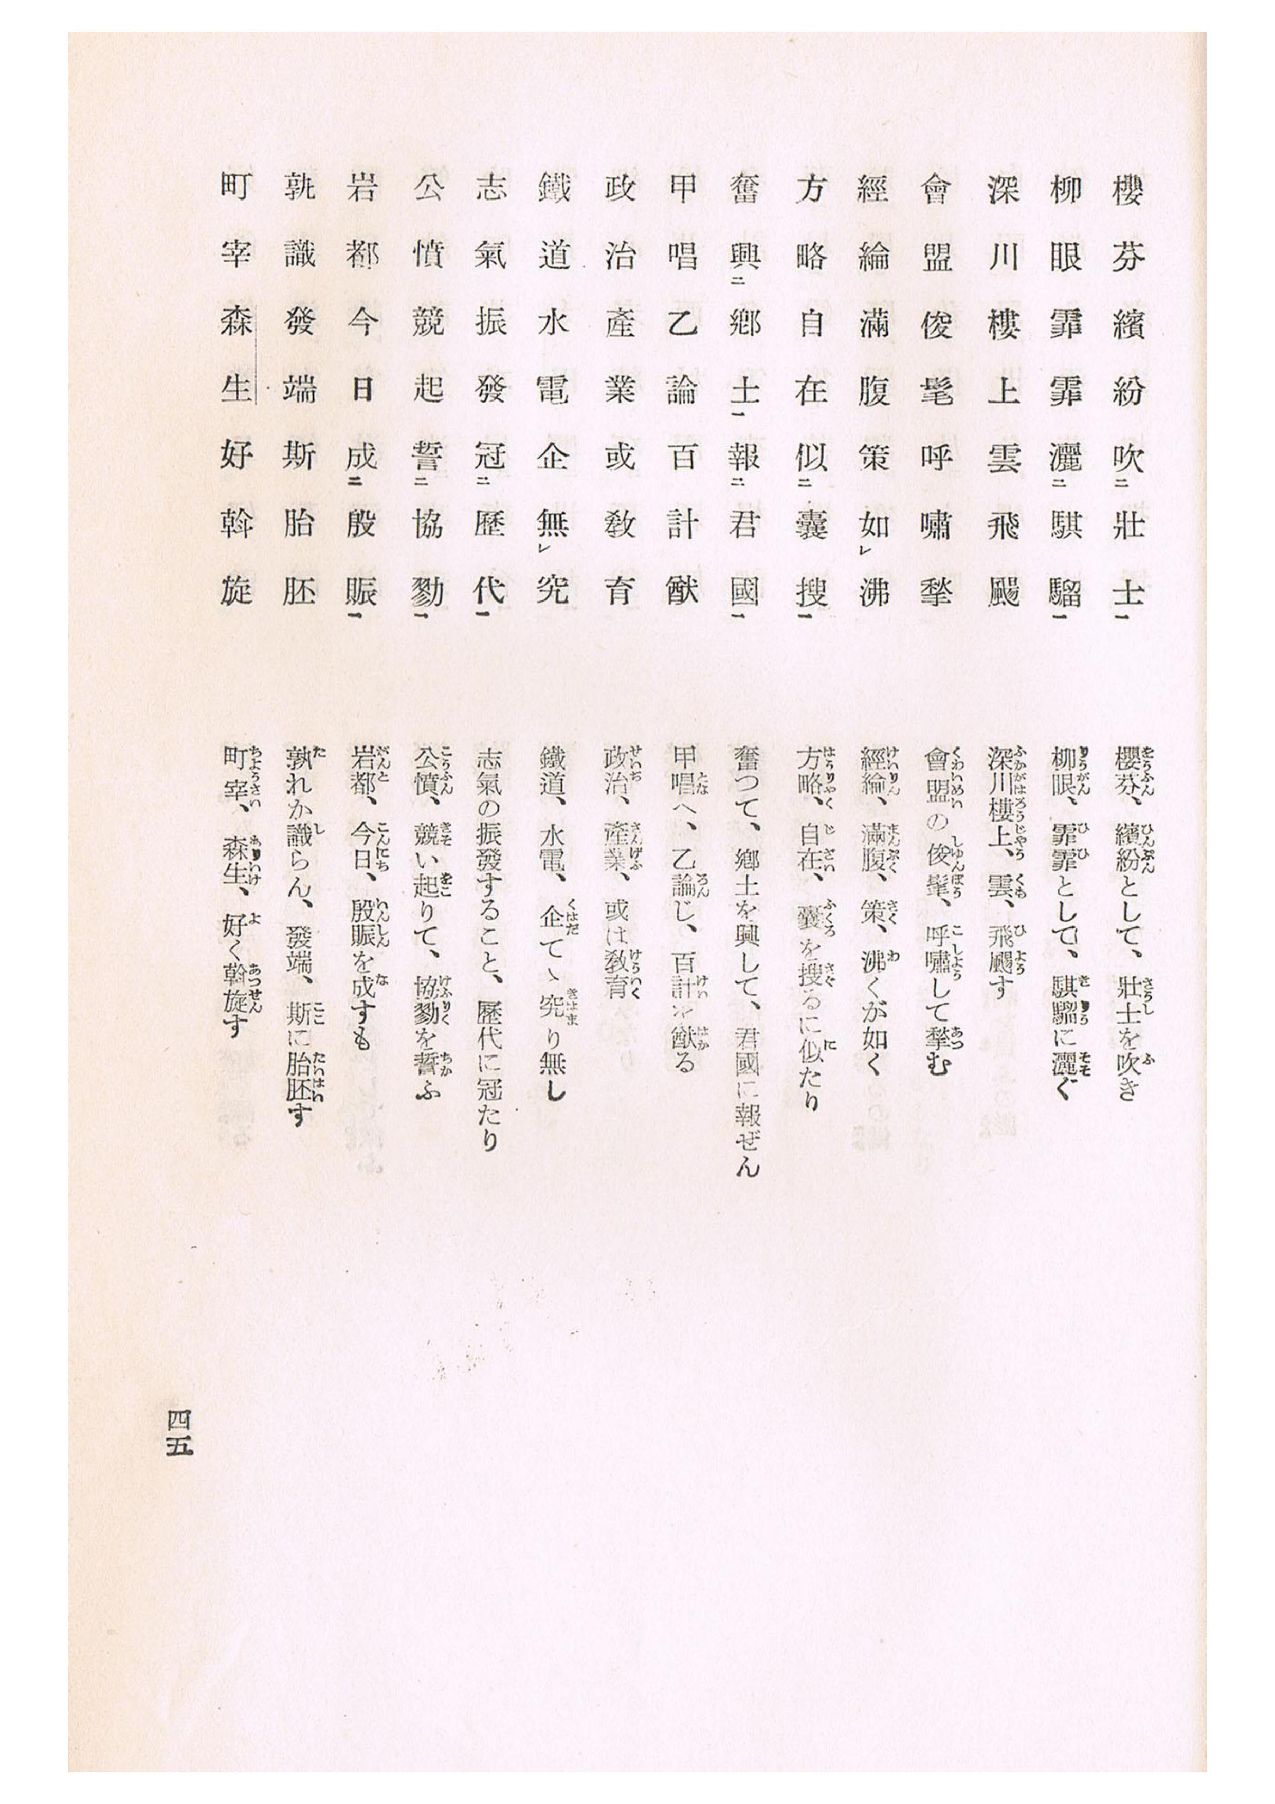 櫻芬繽紛吹二壯士一
櫻芬、繽紛として、壯士を吹き
柳眼霏霏灑二騏騮一
柳眼、霏霏として、騏騮に灑ぐ
深川樓上雲飛颺
深川樓上、雲、飛颺す
會盟俊髦呼嘯揫
會盟の俊髦、呼嘯して揫む
經綸滿腹策如レ沸
經綸、滿腹、策、沸くが如く
方略自在似二嚢搜一
方略、自在、嚢を搜るに似たり
奮興二鄕土一報二君國一
奮つて、鄕土を興して、君國に報ぜん
甲唱乙論百計猷
甲唱へ、乙論じ、百計を猷る
政治產業或敎育
政治、產業、或は敎育
鐵道水電企無レ究
鐵道、水電、企てゝ究り無し
志氣振發冠二歷代一
志氣の振發すること、歷代に冠たり
公憤競起誓二協勠一
公憤、競い起りて、協勠を誓ふ
岩都今日成二殷賑一
岩都、今日、殷賑を成すも
孰識發端斯胎胚
孰れか識らん、發端、斯に胎胚す
町宰森生好斡旋
町宰、森生、好く斡旋す
四五